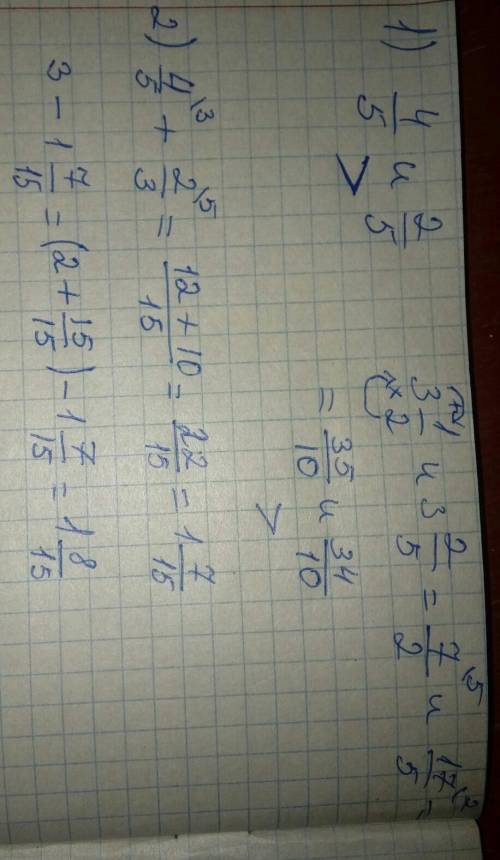 1) 4/5 и 2/5    3 1/2 и 3 2/5 = 7/2 \5 и 17/5 \2 =
>    = 35/10 и 34/10
>
2) 4/5 \3 + 2/3 \5 = 12 + 10/15 = 22/15 = 1 7/15
3 - 1 7/15 = (2 + 15/15) - 1 7/15 = 1 8/15